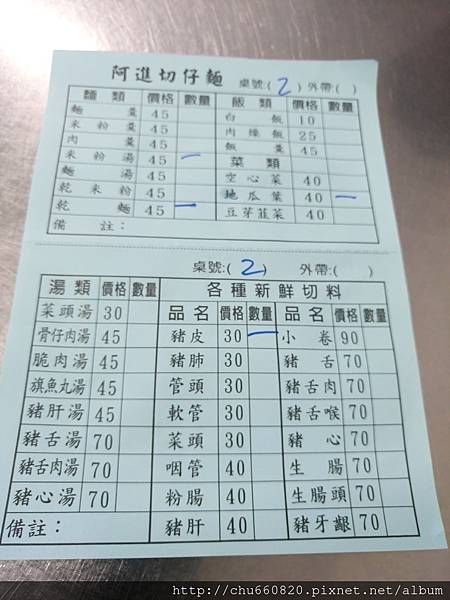 阿進切仔麵 桌號:( 2 ) 外帶( )
麵類 價格 數量 飯類 價格 數量
麵羹 45 白飯 10
米粉羹 45 肉燥飯 25
肉羹 45 飯羹 45
米粉湯 45 一 菜類
麵湯 45 空心菜 40
乾米粉 45 地瓜葉 40 一
乾麵 45 一 豆芽韮菜 40
備註：
桌號:( 2 ) 外帶:( )
湯類 價格 數量 各種新鮮切料
菜頭湯 30 品名 價格 數量 品名 價格 數量
骨仔肉湯 45 豬皮 30 一 小卷 90
脆肉湯 45 豬肺 30 豬舌 70
旗魚丸湯 45 管頭 30 豬舌肉 70
豬肝湯 45 軟管 30 豬舌喉 70
豬舌湯 70 菜頭 30 豬心 70
豬舌肉湯 70 咽管 40 生腸 70
豬心湯 70 粉腸 40 生腸頭 70
備註： 豬肝 40 豬牙齦 70
http://chu660820.pixnet.net/album